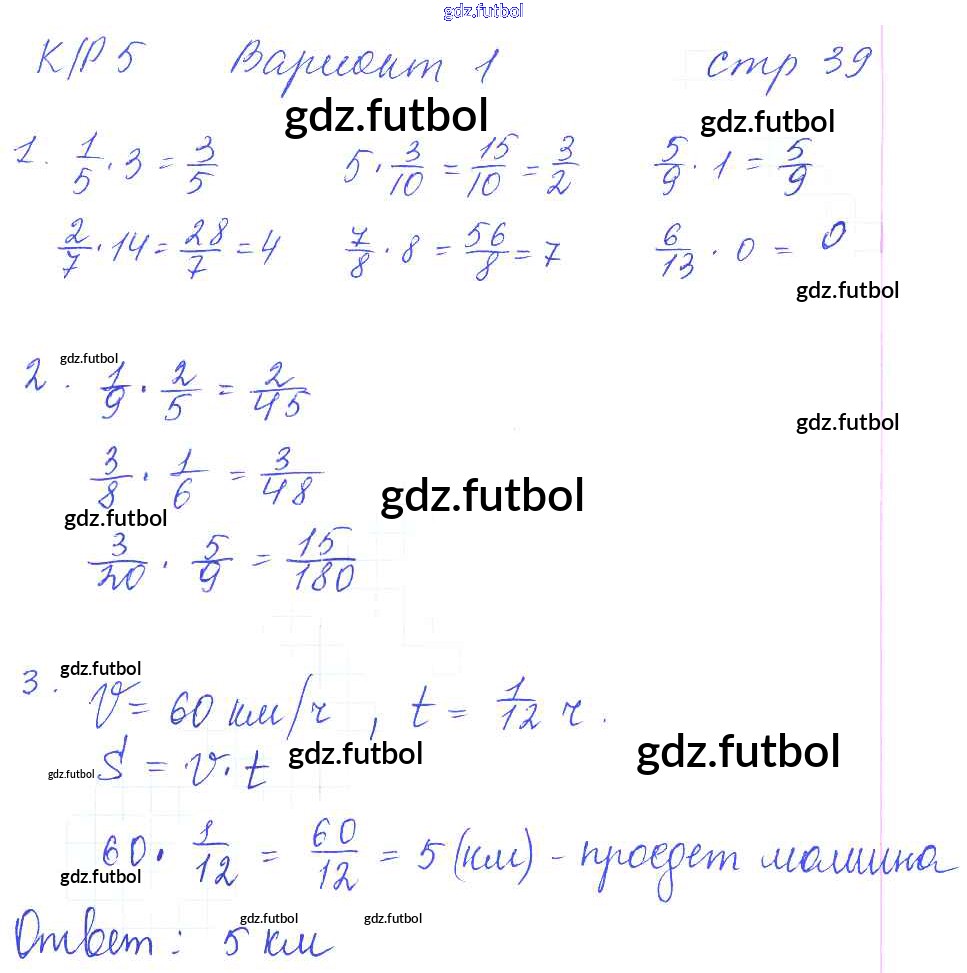 gdz.futbol
К/Р 5 Вариант 1 стр 39
gdz.futbol gdz.futbol
1. 1/5 · 3 = 3/5 5 · 3/10 = 15/10 = 3/2 5/9 · 1 = 5/9
2/7 · 14 = 28/7 = 4 7/8 · 8 = 56/8 = 7 6/13 · 0 = 0
gdz.futbol
gdz.futbol
2. 1/9 · 2/5 = 2/45
gdz.futbol
3/8 · 1/6 = 3/48
gdz.futbol
gdz.futbol
3/20 · 5/9 = 15/180
gdz.futbol
3. V = 60 км/ч, t = 1/12 ч.
gdz.futbol S = v · t gdz.futbol gdz.futbol
60 · 1/12 = 60/12 = 5 (км) - проедет машина
gdz.futbol
gdz.futbol gdz.futbol
Ответ: 5 км